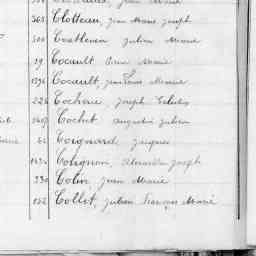 363 Clotteau, Jean Marie Joseph
500 Coatleven Julien Marie
29 Cocault Pierre Marie
1296 Cocault, Jean Louis Marie
226 Cochene Joseph
2407 Cochet Augustin Julien
62 Coignard Jacques
1434 Coignon, Alexandre Joseph
330 Colin Jean Marie
122 Collet, Julien François Marie